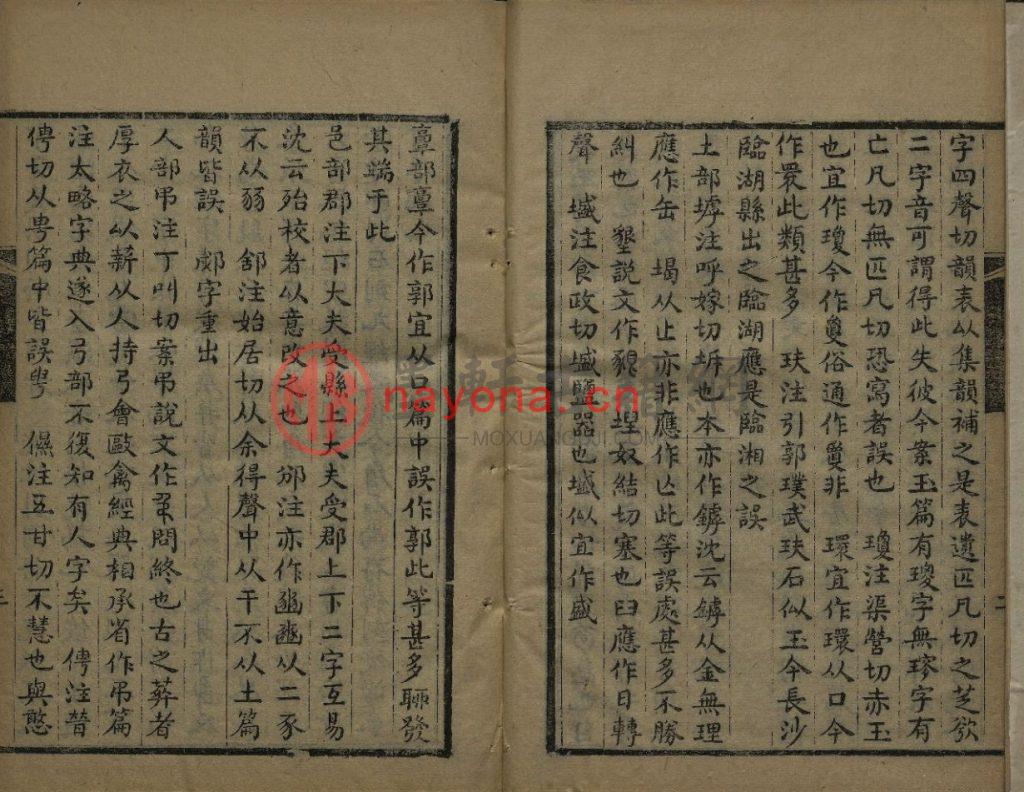 字四聲切韻表以集韻補之是表遺匹凡切之芝欲
二字音可謂得此失彼今案玉篇有㺟字無瑏字有
亡凡切無匹凡切恐寫者誤也　瓊注渠營切赤玉
也宜作瓊今作敻俗通作夐非　環宜作環从口今
作睘此類甚多　玞注引郭璞武玞石似玉今長沙
臨湖縣出之臨湖應是臨湘之誤
土部墟注呼嫁切坼也本亦作罅沈云罅从金無理
應作缶　堨从止亦非應作亾此等誤處甚多不勝
糾也　墾說文作豤　埋奴結切塞也曰應作日轉
聲　墄注食政切墄鹽器也墄似宜作盛
𩫏部𩫏今作郭宜从口篇中誤作郭此等甚多聊發
其端于此
邑部郡注下大夫受縣上大夫受郡上下二字互易
沈云殆校者以意改之也　邠注亦作豳豳从二豕
不从豩　郐注始居切从余得聲中从干不从土篇
韻皆誤　郕字重出
人部弔注丁叫切案弔說文作𢎣問終也古之葬者
厚衣之以薪从人持弓會敺禽經典相承省作弔篇
注太略字典遂入弓部不復知有人字矣　俜注普
俜切从甹篇中皆誤甹　儑注五甘切不慧也與憨
二
三
nayona.cn
MOXUANGUJI.COM